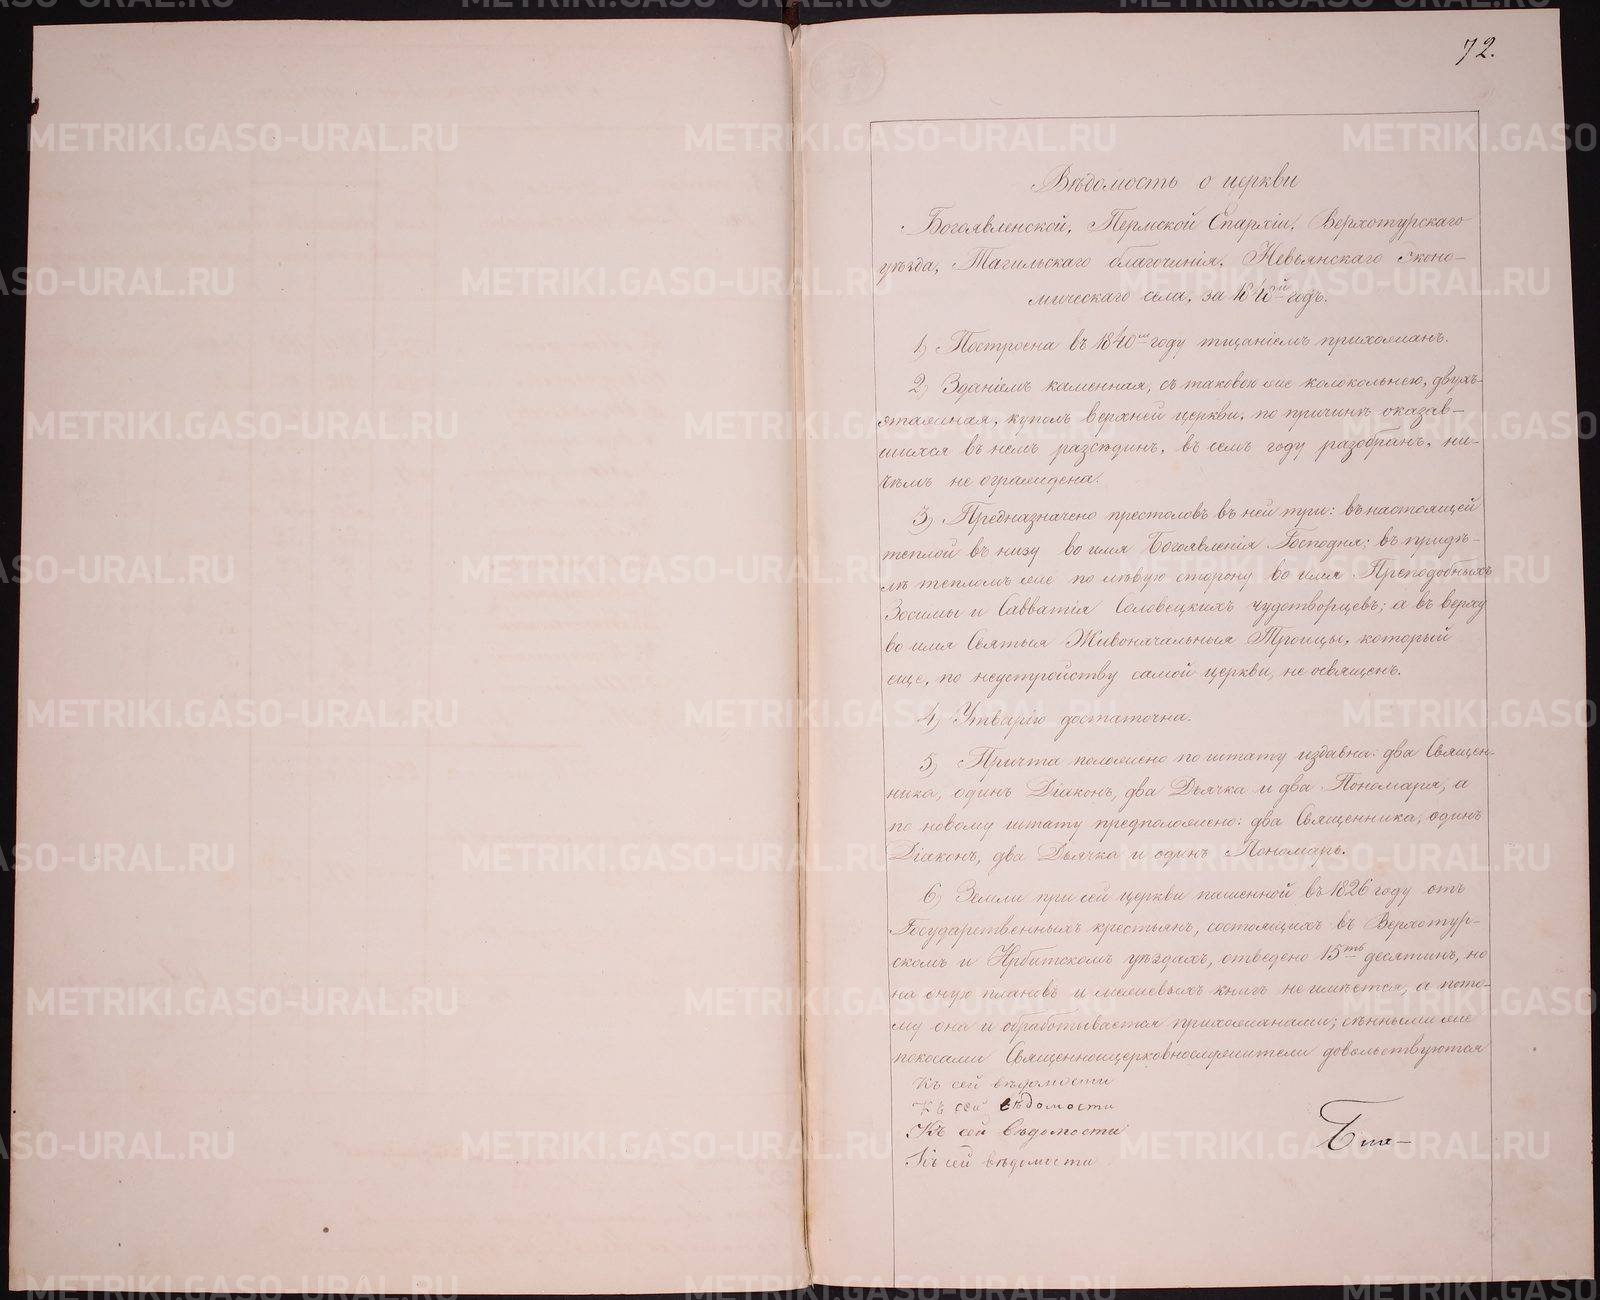 72.
Вѣдомость о церкви
Богоявленской, Пермской Епархіи, Верхотурскаго
уѣзда, Тагильскаго благочинія, Невьянскаго Эконо-
мическаго села, за 184 й годъ.
1, Построена въ 1840 мъ году тщаніемъ прихожанъ.
2, Зданіемъ каменная, съ таковою же колокольнею, двухъ-
этажная, куполъ верхней церкви, по причинѣ оказав-
шихся въ немъ разсѣдинъ, въ семъ году разобранъ, ни-
чѣмъ не ограждена.
3, Предназначено престоловъ въ ней три: въ настоящей
теплой въ низу во имя Богоявленія Господня; въ придѣ-
лѣ тепломъ же по лѣвую сторону во имя Преподобныхъ
Зосимы и Савватія Соловецкихъ чудотворцевъ; а въ верху
во имя Святыя Живоначальныя Троицы, который
еще, по неустройству самой церкви, не освященъ.
4, Утварію достаточна.
5, Причта положено по штату издавна: два Священ-
ника, одинъ Діаконъ, два Дьячка и два Пономаря, а
по новому штату предположено: два Священника, одинъ
Діаконъ, два Дьячка и одинъ Пономарь.
6, Земли при сей церкви пашенной въ 1826 году отъ
Государственныхъ крестьянъ, состоящихъ въ Верхотур-
скомъ и Ирбитскомъ уѣздахъ, отведено 15 ть десятинъ, но
на оную плановъ и межевыхъ книгъ не имѣется, а пото-
му она и обработывается прихожанами; сѣнными же
покосами Священноицерковнослужители довольствуются
Къ сей вѣдомости
Къ сей вѣдомости
Къ сей вѣдомости
Къ сей вѣдомости
METRIKI.GASO-URAL.RU